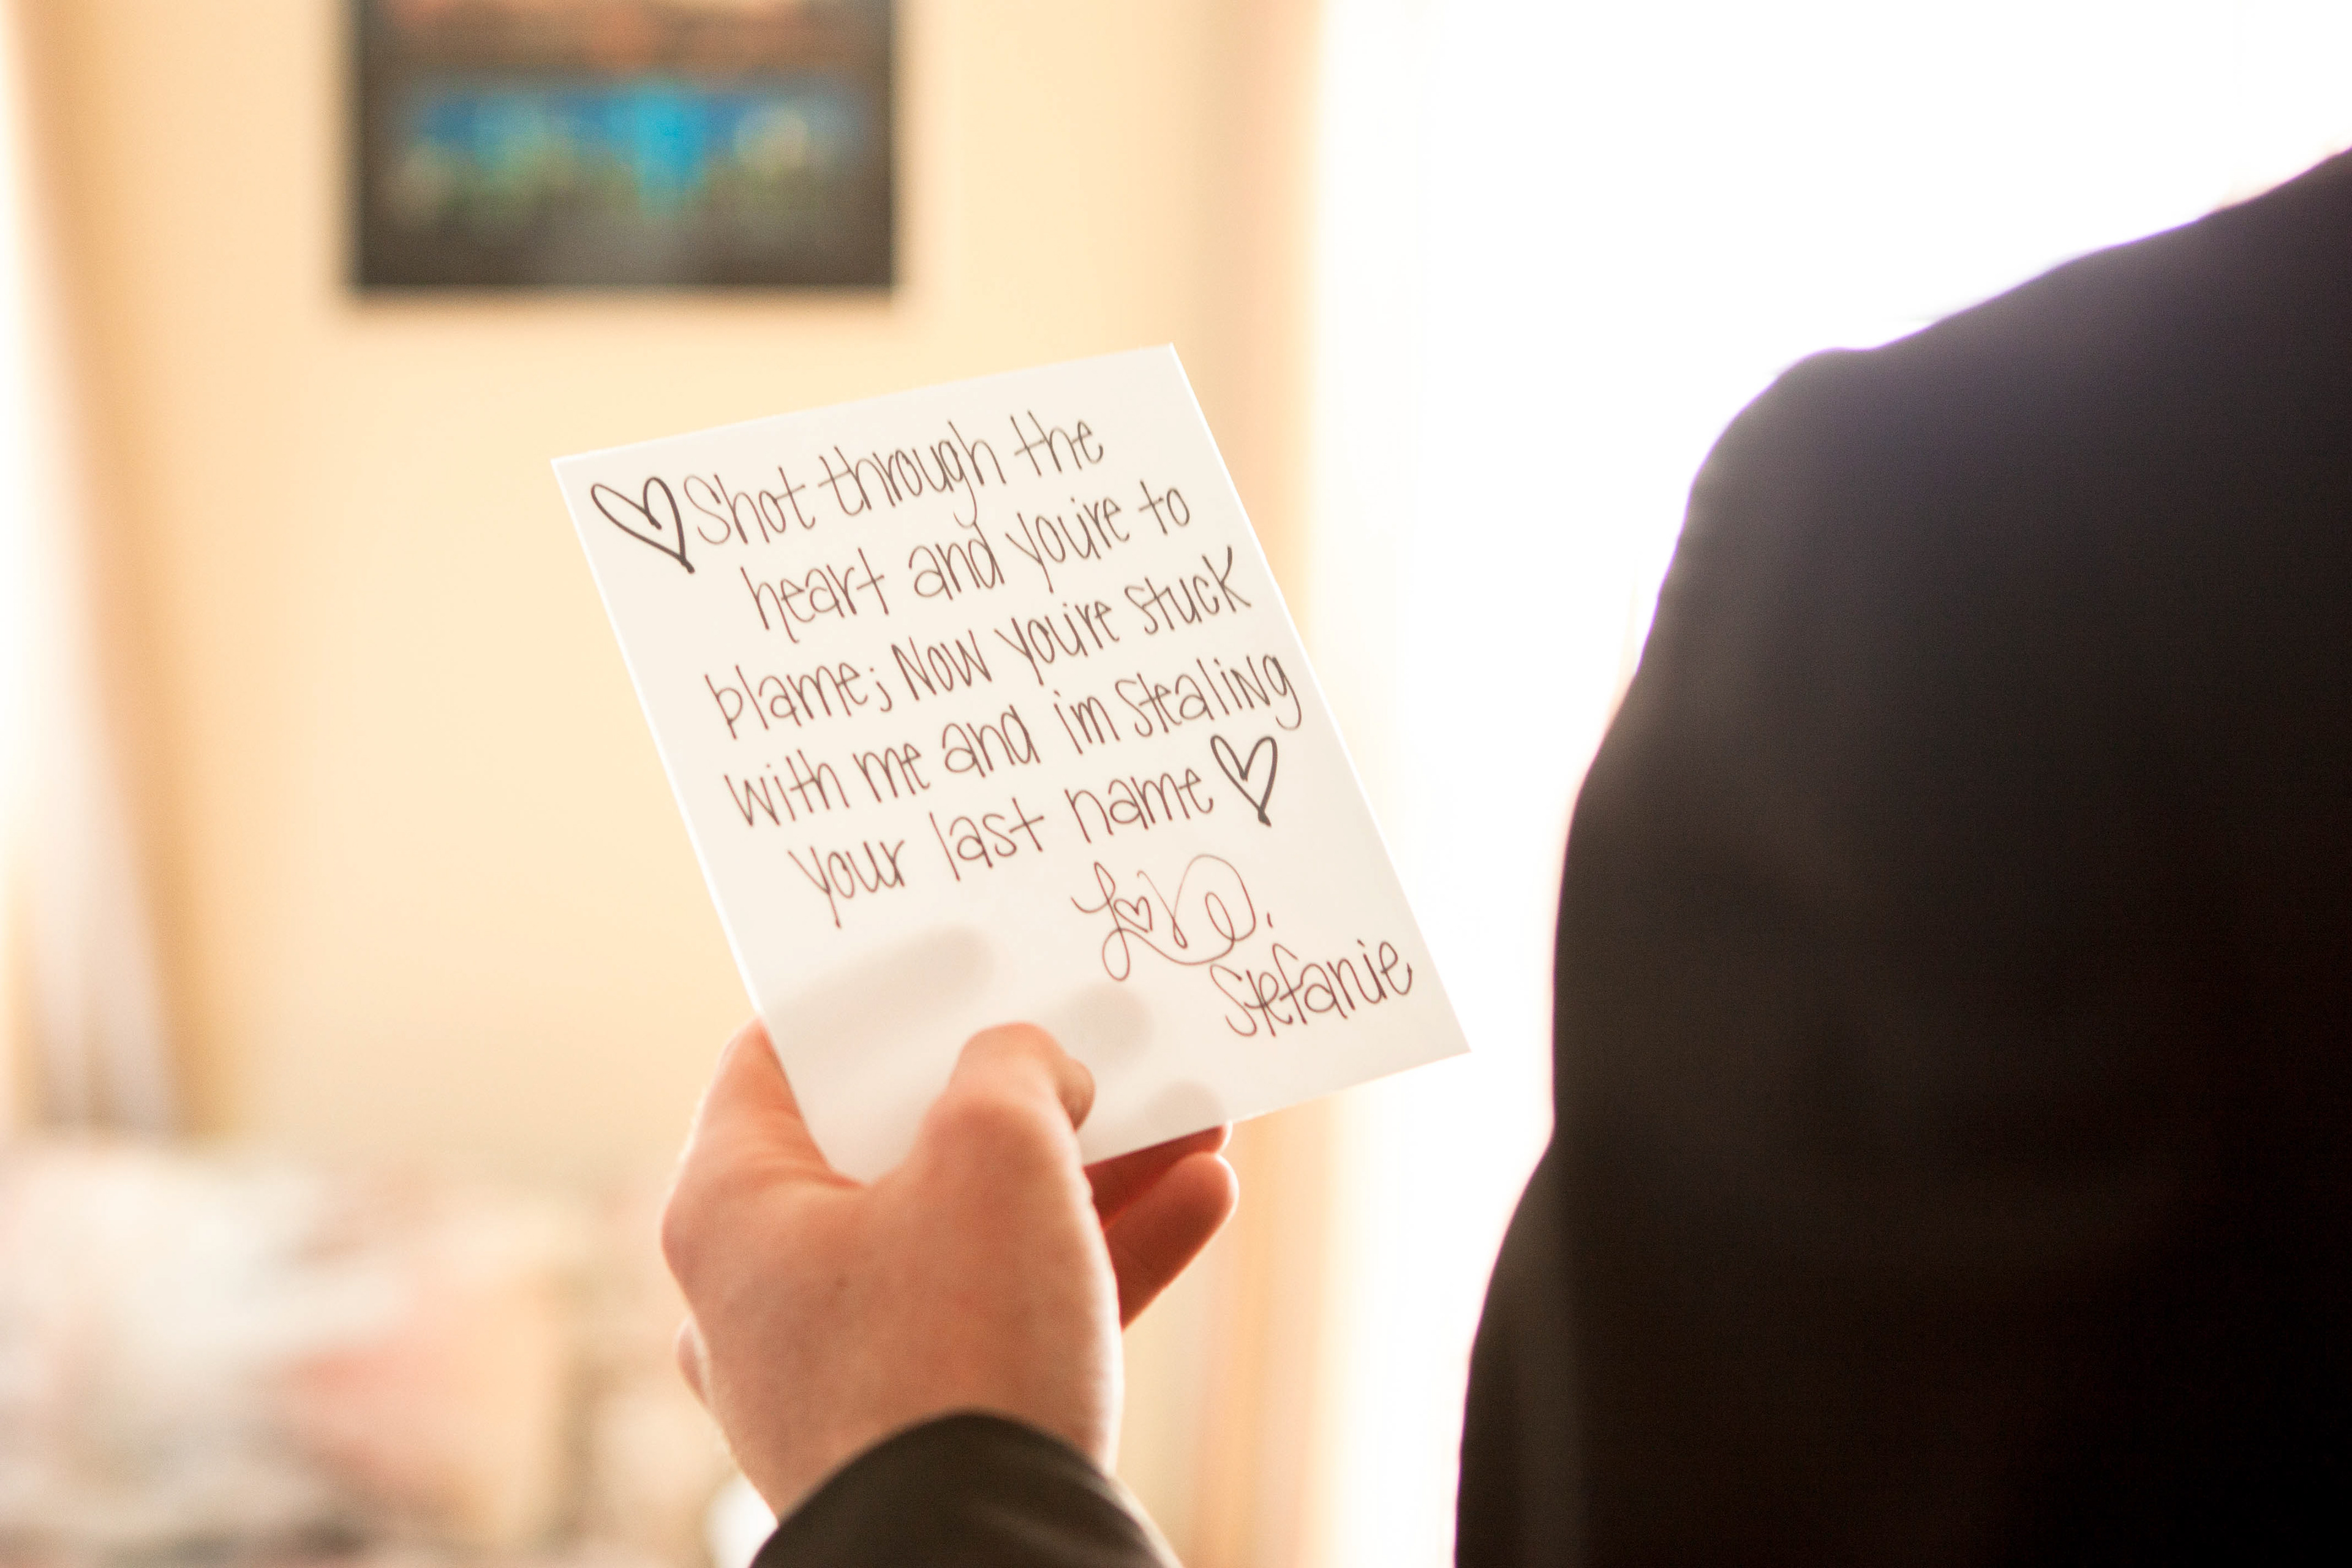 ♡ Shot through the
heart and you're to
blame; Now you're stuck
with me and im stealing
your last name ♡
Love,
Stefanie